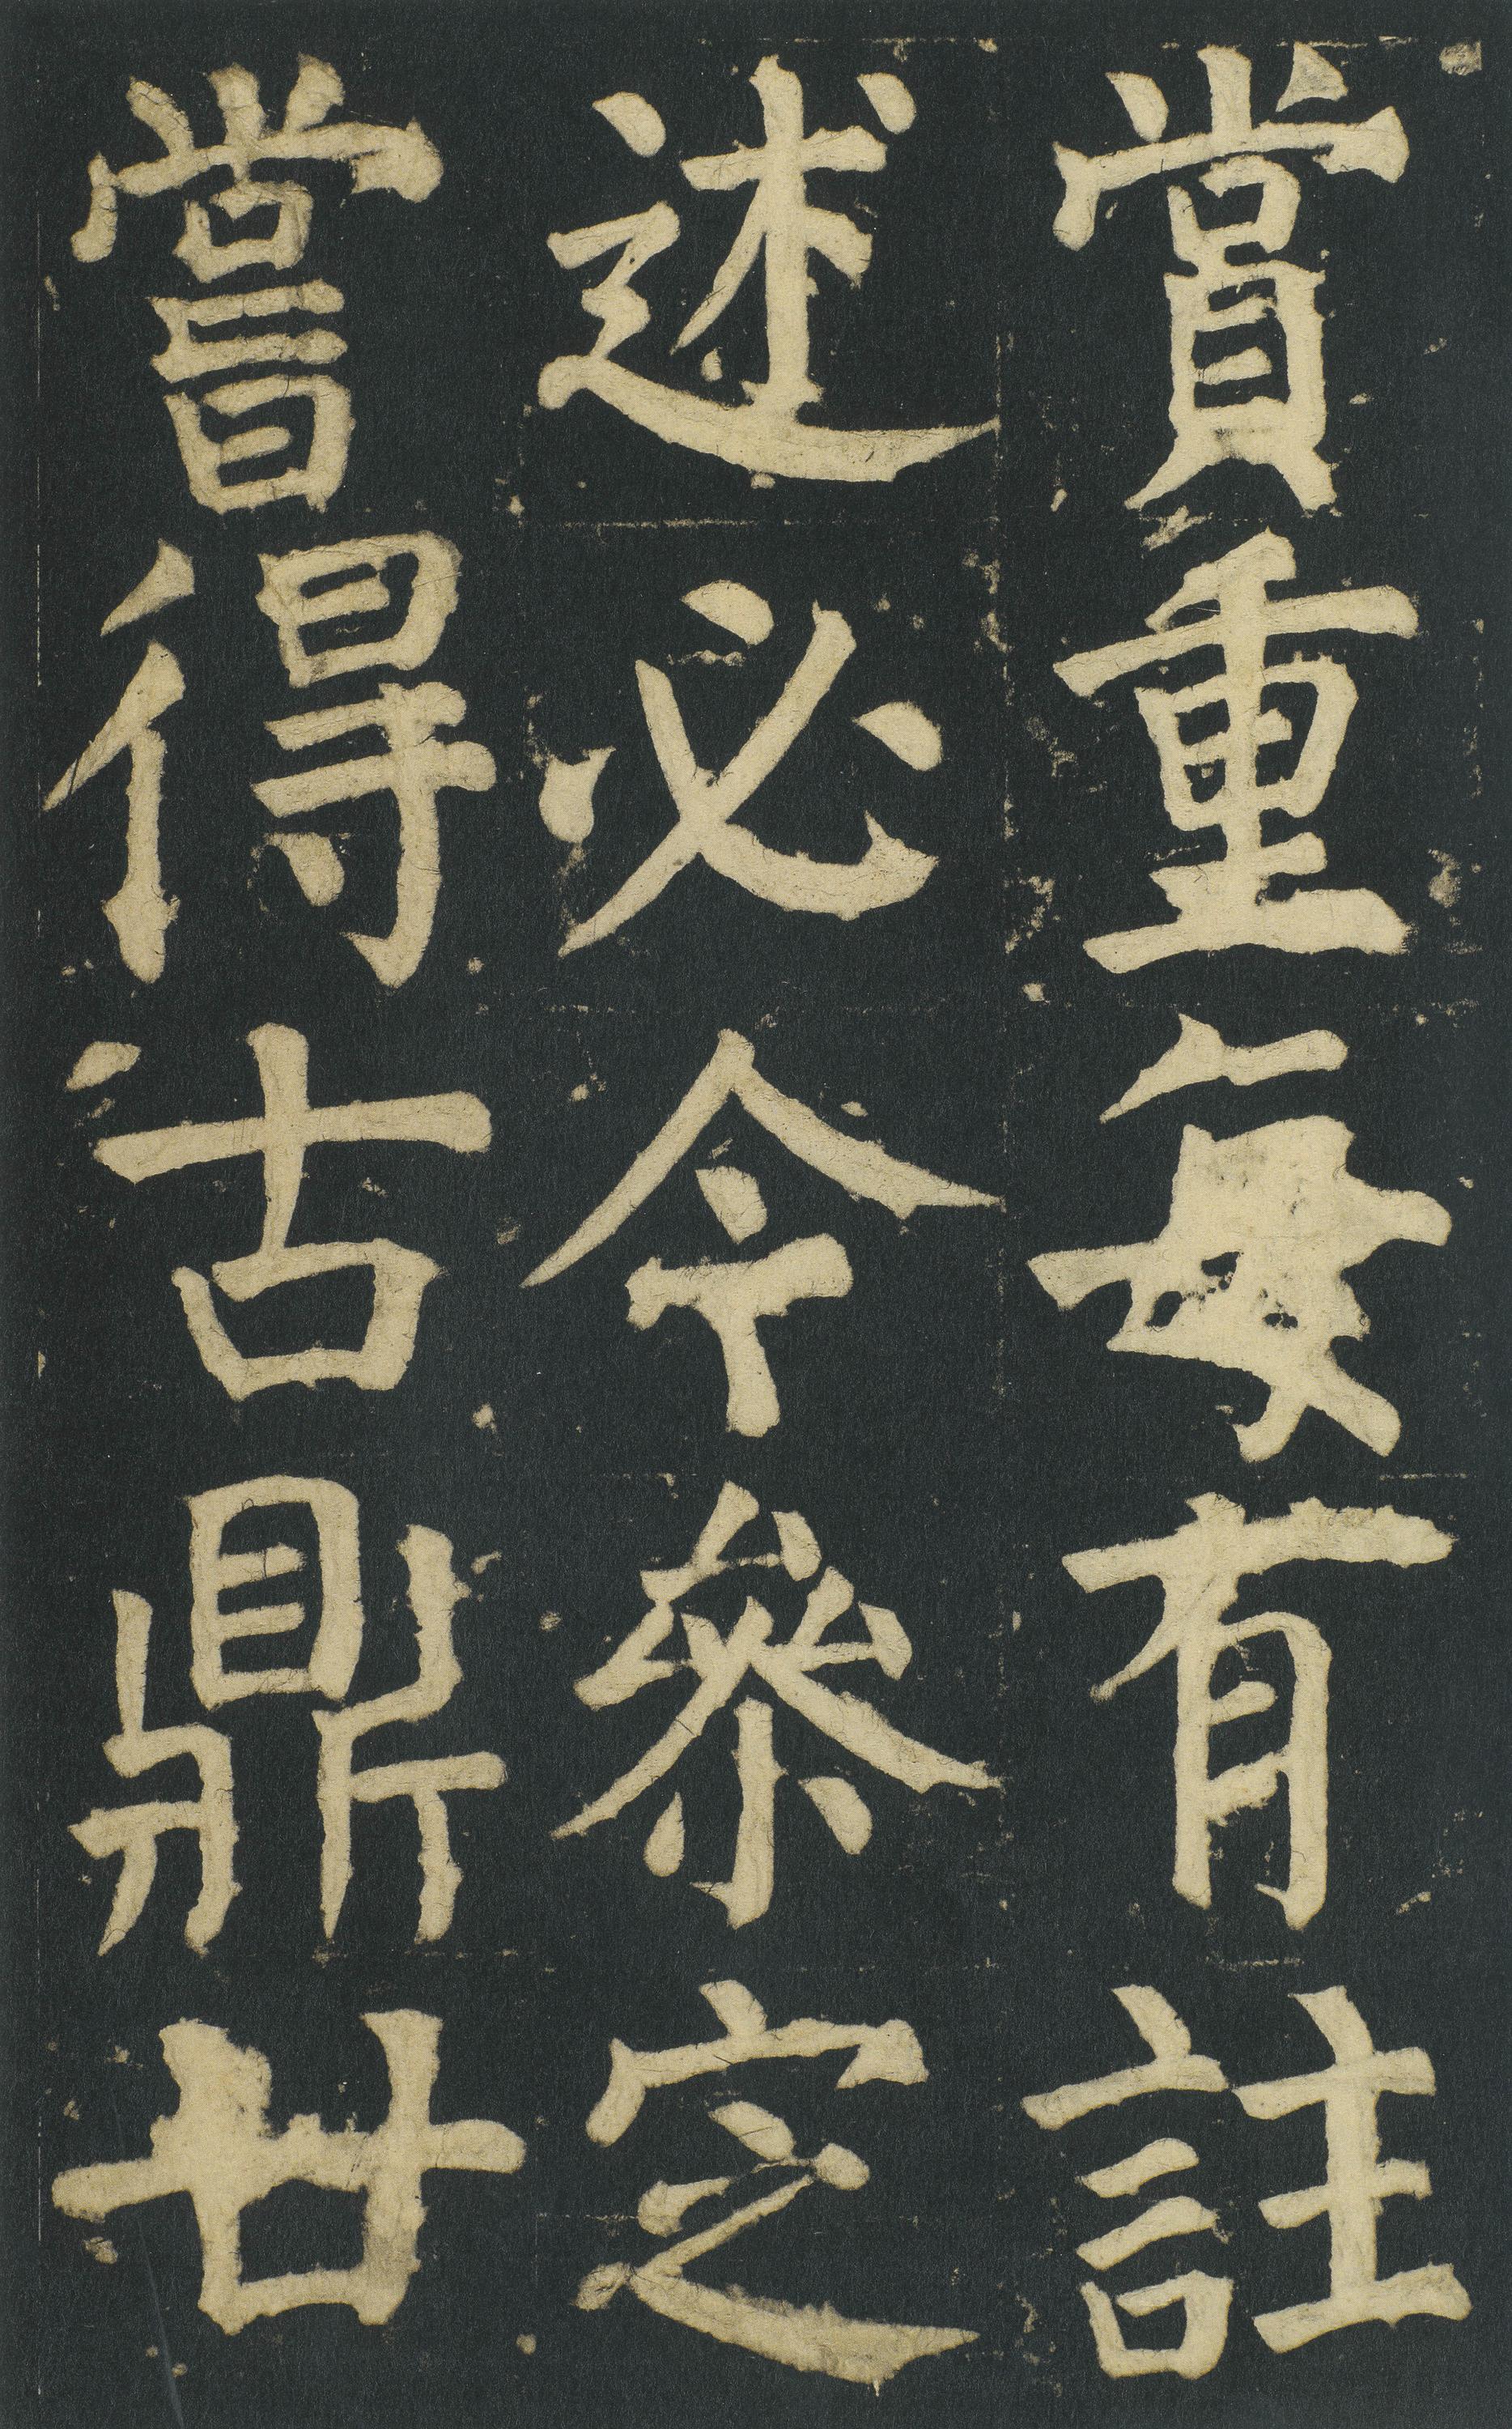 賞重每有註
述必令參定
嘗得古鼎廿